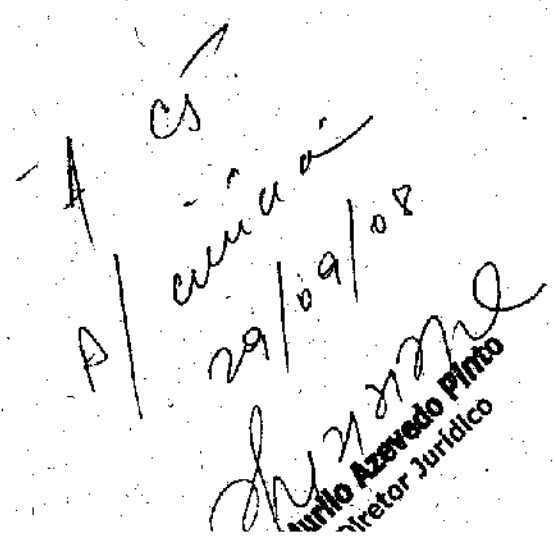 A CS
p/ ciência
29/09/08
Murilo Azevedo Pinto
Diretor Jurídico